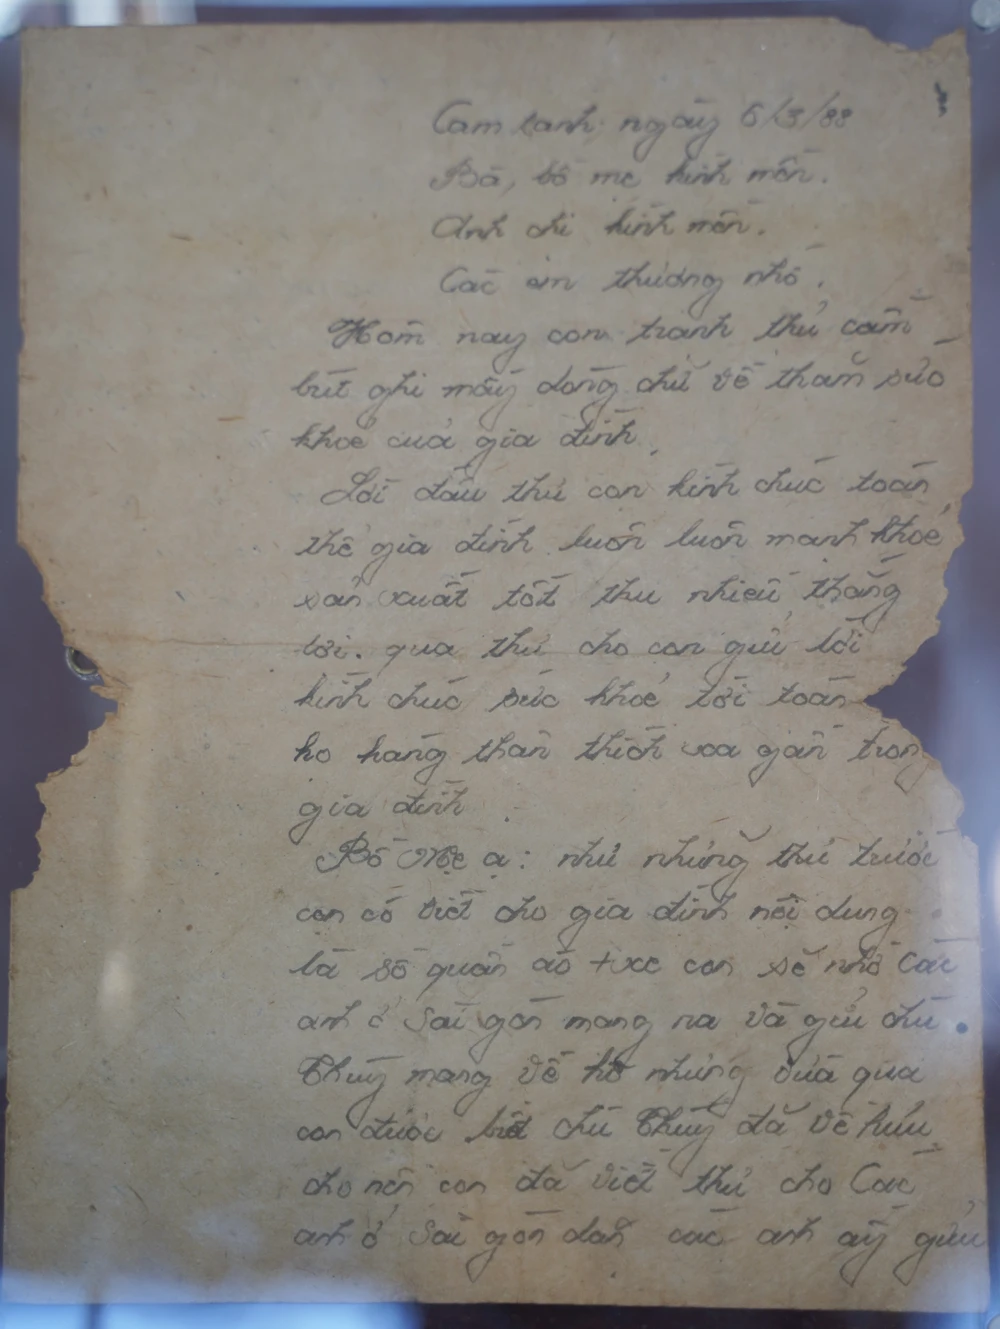 Cam Ranh, ngày 6/3/88
Bà, bố mẹ kính mến.
Anh chị kính mến.
Các em thương nhớ.
Hôm nay con tranh thủ cầm
bút ghi mấy dòng chữ về thăm sức
khoẻ của gia đình.
Lời đầu thư con kính chúc toàn
thể gia đình luôn luôn mạnh khoẻ
sản xuất tốt thu nhiều thắng
lợi. qua thư cho con gửi lời
kính chúc sức khoẻ tới toàn
họ hàng thân thích xa gần trong
gia đình.
Bố Mẹ ạ: như những thư trước
con có viết cho gia đình nội dung
là số quần áo + xe con sẽ nhờ Các
anh ở Sài gòn mang ra và gửi chú
Thuỷ mang về hộ nhưng vừa qua
con được biết chú Thuỷ đã về hưu
cho nên con đã viết thư cho Các
anh ở Sài gòn dặn các anh ấy gửi